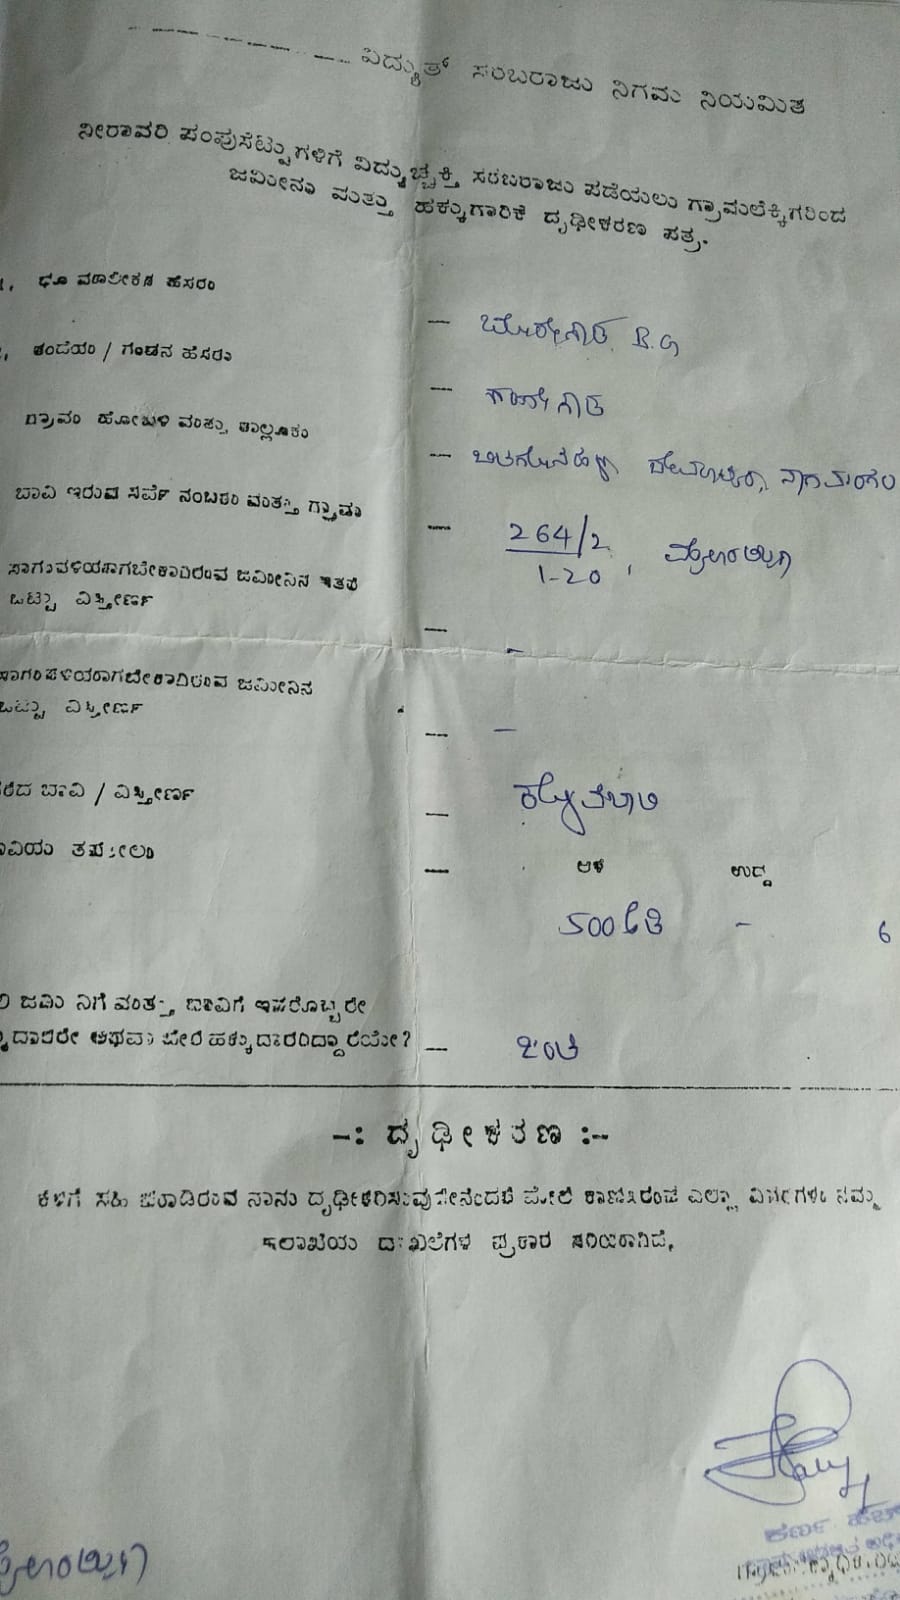 ವಿದ್ಯುತ್ ಸರಬರಾಜು ನಿಗಮ ನಿಯಮಿತ
ನೀರಾವರಿ ಪಂಪುಸೆಟ್ಟುಗಳಿಗೆ ವಿದ್ಯುಚ್ಛಕ್ತಿ ಸರಬರಾಜು ಪಡೆಯಲು ಗ್ರಾಮಲೆಕ್ಕಿಗರಿಂದ
ಜಮೀನು ಮತ್ತು ಹಕ್ಕುಗಾರಿಕೆ ದೃಢೀಕರಣ ಪತ್ರ.
ಭೂ ಮಾಲೀಕನ ಹೆಸರು
– B.G
ತಂದೆಯ / ಗಂಡನ ಹೆಸರು –
ಗ್ರಾಮ ಹೋಬಳಿ ಮತ್ತು ತಾಲ್ಲೂಕು
– ನಾಗಮಂಗಲ
ಬಾವಿ ಇರುವ ಸರ್ವೆ ನಂಬರು ಮತ್ತು ಗ್ರಾಮ
– 264/2
1-20,
ಸಾಗುವಳಿಯಾಗಬೇಕಾಗಿರುವ ಜಮೀನಿನ ಇತರೆ
ಒಟ್ಟು ವಿಸ್ತೀರ್ಣ
– -
ಸಾಗುವಳಿಯಾಗಬೇಕಾಗಿರುವ ಜಮೀನಿನ
ಒಟ್ಟು ವಿಸ್ತೀರ್ಣ
– –
ಬಾವಿ / ವಿಸ್ತೀರ್ಣ – ಕೊಳವೆಬಾವಿ
ತಪಶೀಲು – ಆಳ ಉದ್ದ
500 ಅಡಿ - 6
ಜಮೀನಿಗೆ ಮತ್ತು ಬಾವಿಗೆ ಇವರೊಬ್ಬರೇ
ಅಥವಾ ಬೇರೆ ಹಕ್ಕುದಾರರಿದ್ದಾರೆಯೇ? –
-: ದೃಢೀಕರಣ :-
ಕೆಳಗೆ ಸಹಿ ಮಾಡಿರುವ ನಾನು ದೃಢೀಕರಿಸುವುದೇನೆಂದರೆ ಮೇಲೆ ಕಾಣಿಸಿರುವ ಎಲ್ಲಾ ವಿವರಗಳು ನಮ್ಮ
ಇಲಾಖೆಯ ದಾಖಲೆಗಳ ಪ್ರಕಾರ ಸರಿಯಾಗಿದೆ.